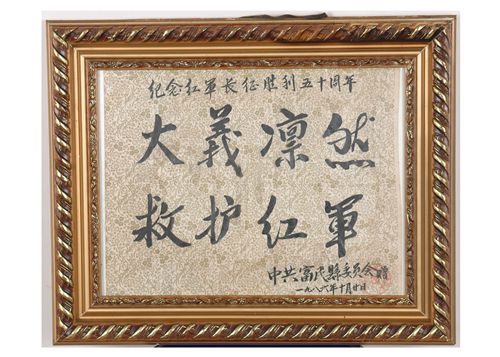 纪念红軍长征胜利五十周年
大義凛然
救护红軍
中共富民縣委员会贈
一九八六年十月廿日